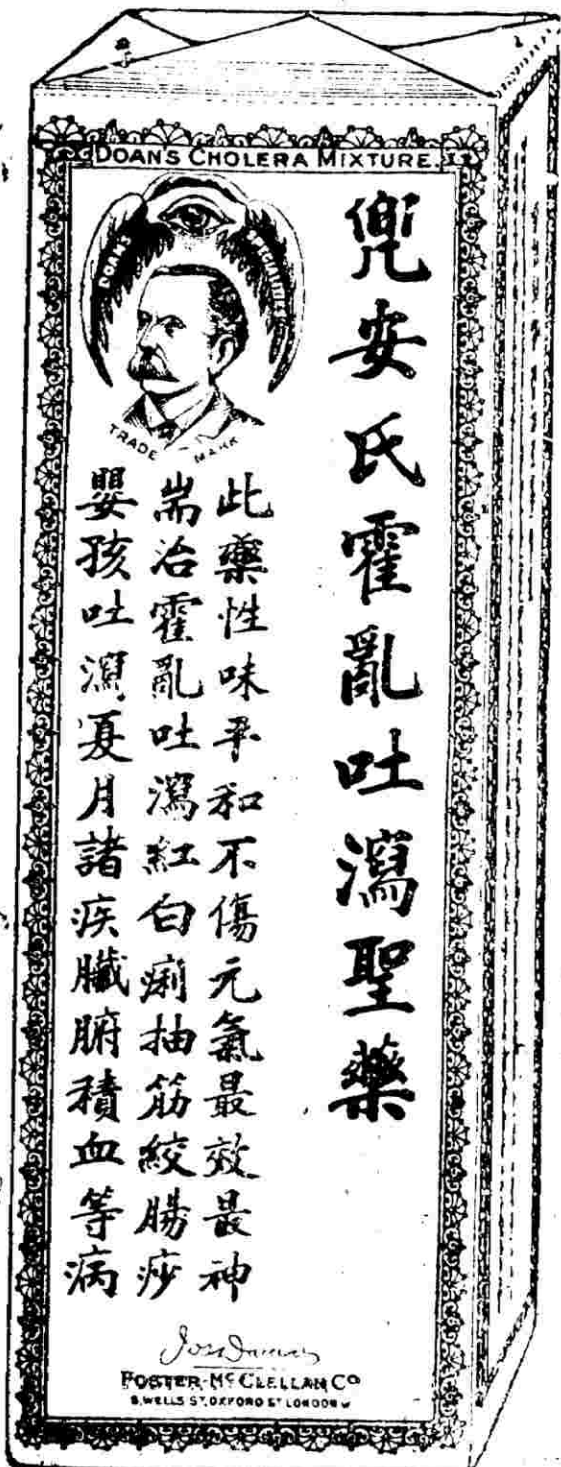 DOAN'S CHOLERA MIXTURE.
DOAN'S SPECIALITIES
TRADE MARK
兜安氏霍亂吐瀉聖藥
此藥性味平和不傷元氣最效最神
耑治霍亂吐瀉紅白痢抽筋絞腸痧
嬰孩吐瀉夏月諸疾臟腑積血等病
FOSTER-McCLELLAN Co
8, WELLS ST. OXFORD ST LONDON W